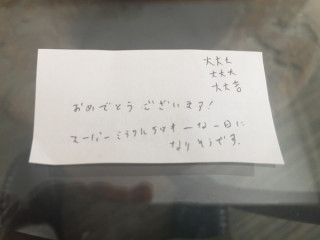 大大大
大大大
大大吉
おめでとうございます!
スーパーミラクルラッキーな一日に
なりそうです。